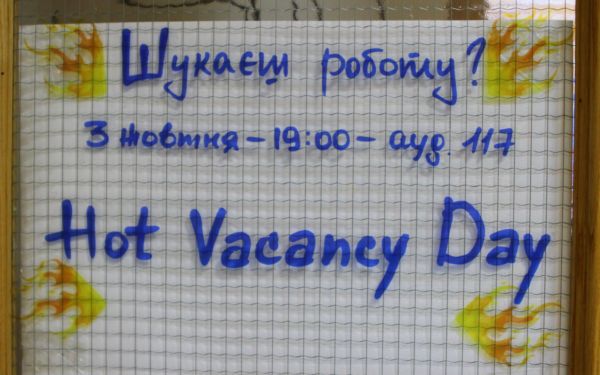 Шукаєш роботу?
3 жовтня - 19:00 - ауд. 117
Hot Vacancy Day